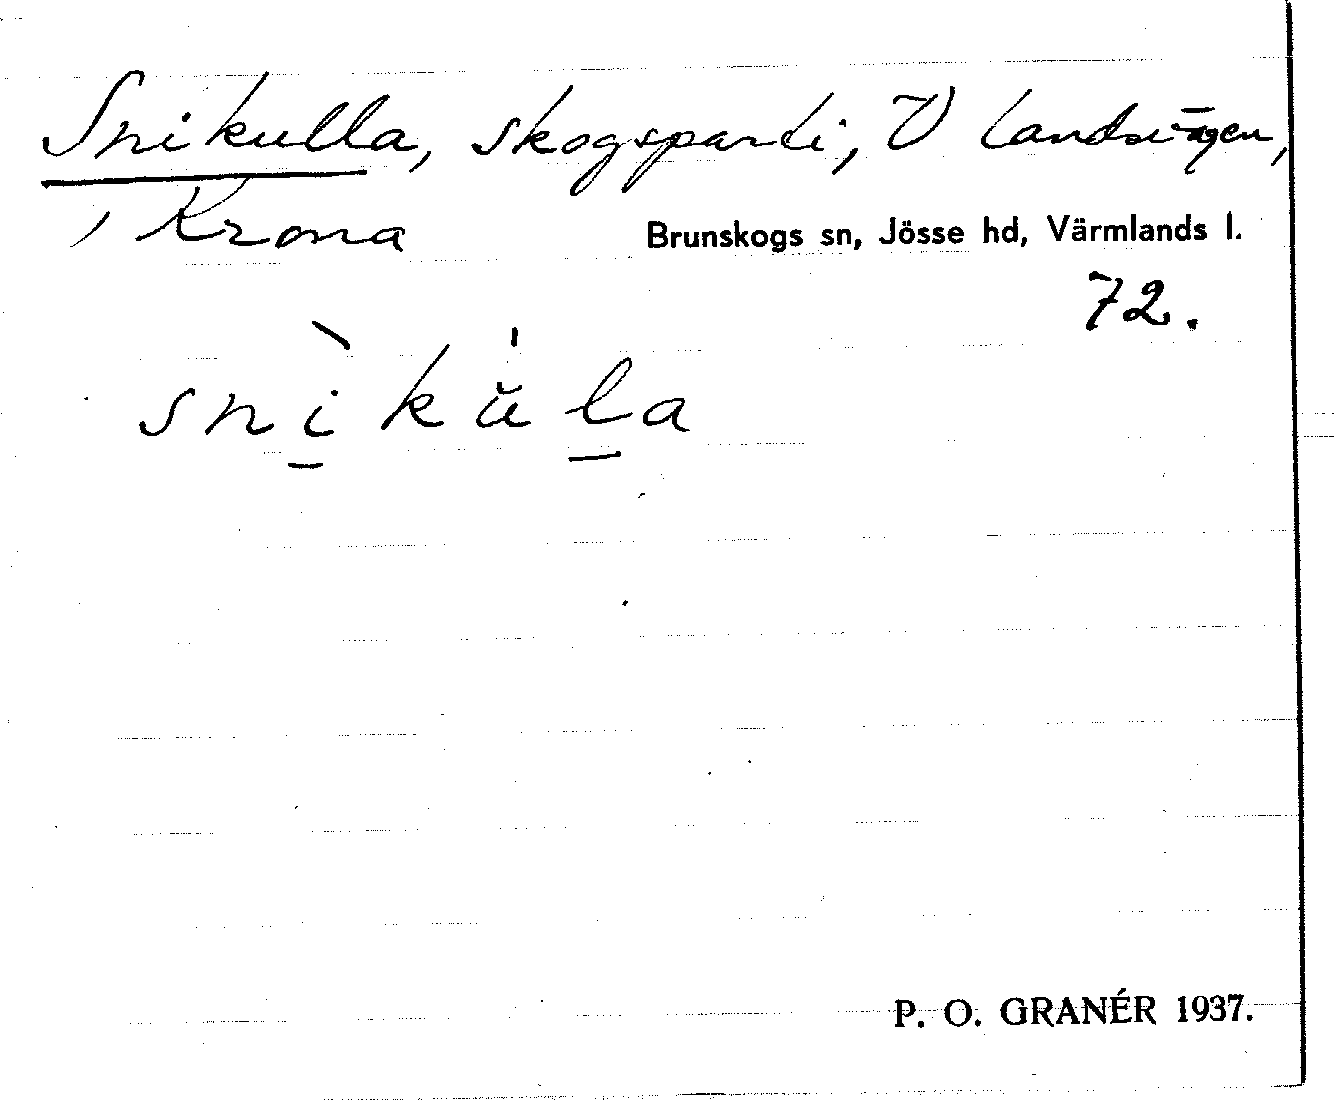 Snikulla, skogsparti, V landsvägen,
i Krona
Brunskogs sn, Jösse hd, Värmlands l.
72.
snìkŭ̍la
P. O. GRANÉR 1937.